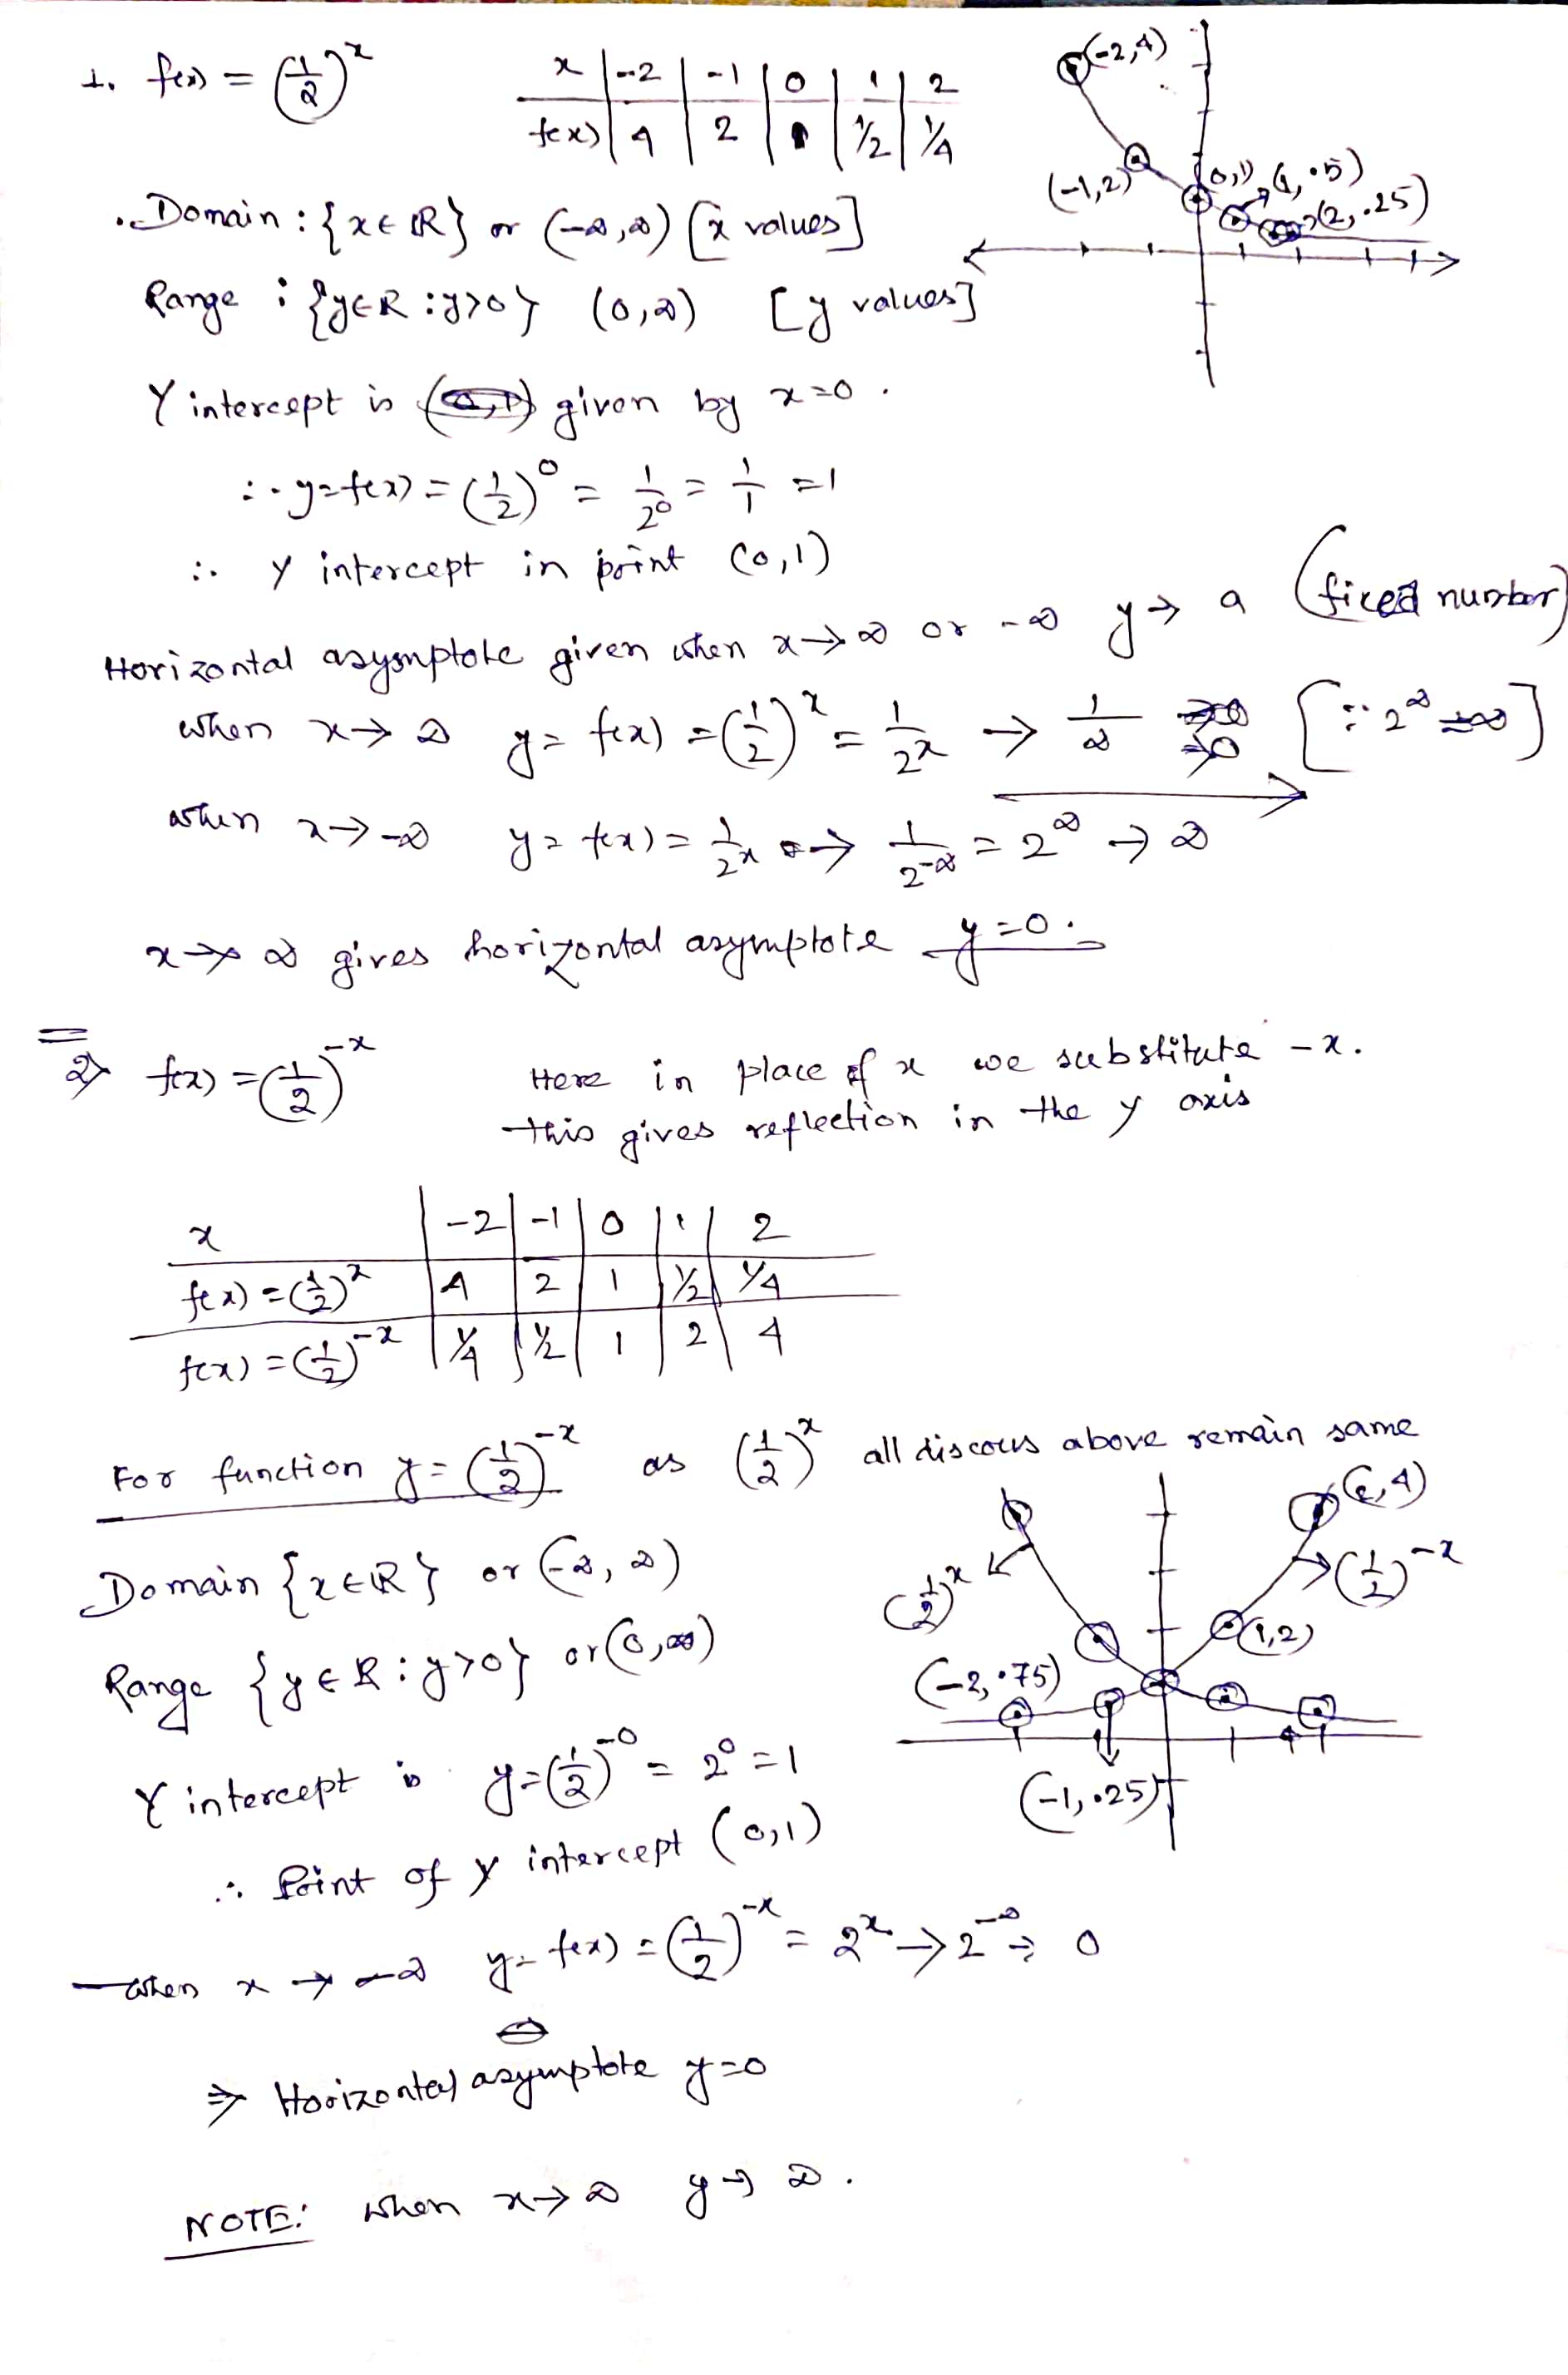 1. f(x) = (1/2)^x
x | -2 | -1 | 0 | 1 | 2
f(x) | 4 | 2 | 1 | 1/2 | 1/4
(-2,4)
(-1,2) (0,1) (1,.5) (2,.25)
Domain : {x∈ℝ} or (-∞,∞) [x values]
Range : {y∈R : y>0} (0,∞) [y values]
Y intercept is given by x=0.
∴ y=f(x) = (1/2)^0 = 1/2^0 = 1/1 = 1
∴ y intercept in point (0,1)
Horizontal asymptote given when x→∞ or -∞ y→ a (fixed number)
when x→∞ y = f(x) = (1/2)^x = 1/2^x → 1/∞ → 0 [∵ 2^∞ = ∞]
when x→-∞ y = f(x) = 1/2^x → 1/2^-∞ = 2^∞ → ∞
x→∞ gives horizontal asymptote y=0.
2) f(x) = (1/2)^-x Here in place of x we substitute -x.
this gives reflection in the y axis
x | -2 | -1 | 0 | 1 | 2
f(x) = (1/2)^x | 4 | 2 | 1 | 1/2 | 1/4
f(x) = (1/2)^-x | 1/4 | 1/2 | 1 | 2 | 4
For function y = (1/2)^-x as (1/2)^x all discous above remain same
Domain {x∈ℝ} or (-∞, ∞)
Range {y∈R : y>0} or (0,∞)
Y intercept is y = (1/2)^-0 = 2^0 = 1
∴ Point of y intercept (0,1)
(2,4)
(1/2)^x (1/2)^-x
(1,2)
(-2,.75)
(-1,.25)
when x → -∞ y = f(x) = (1/2)^-x = 2^x → 2^-∞ → 0
⇒ Horizontal asymptote y=0
NOTE: when x→∞ y→∞.